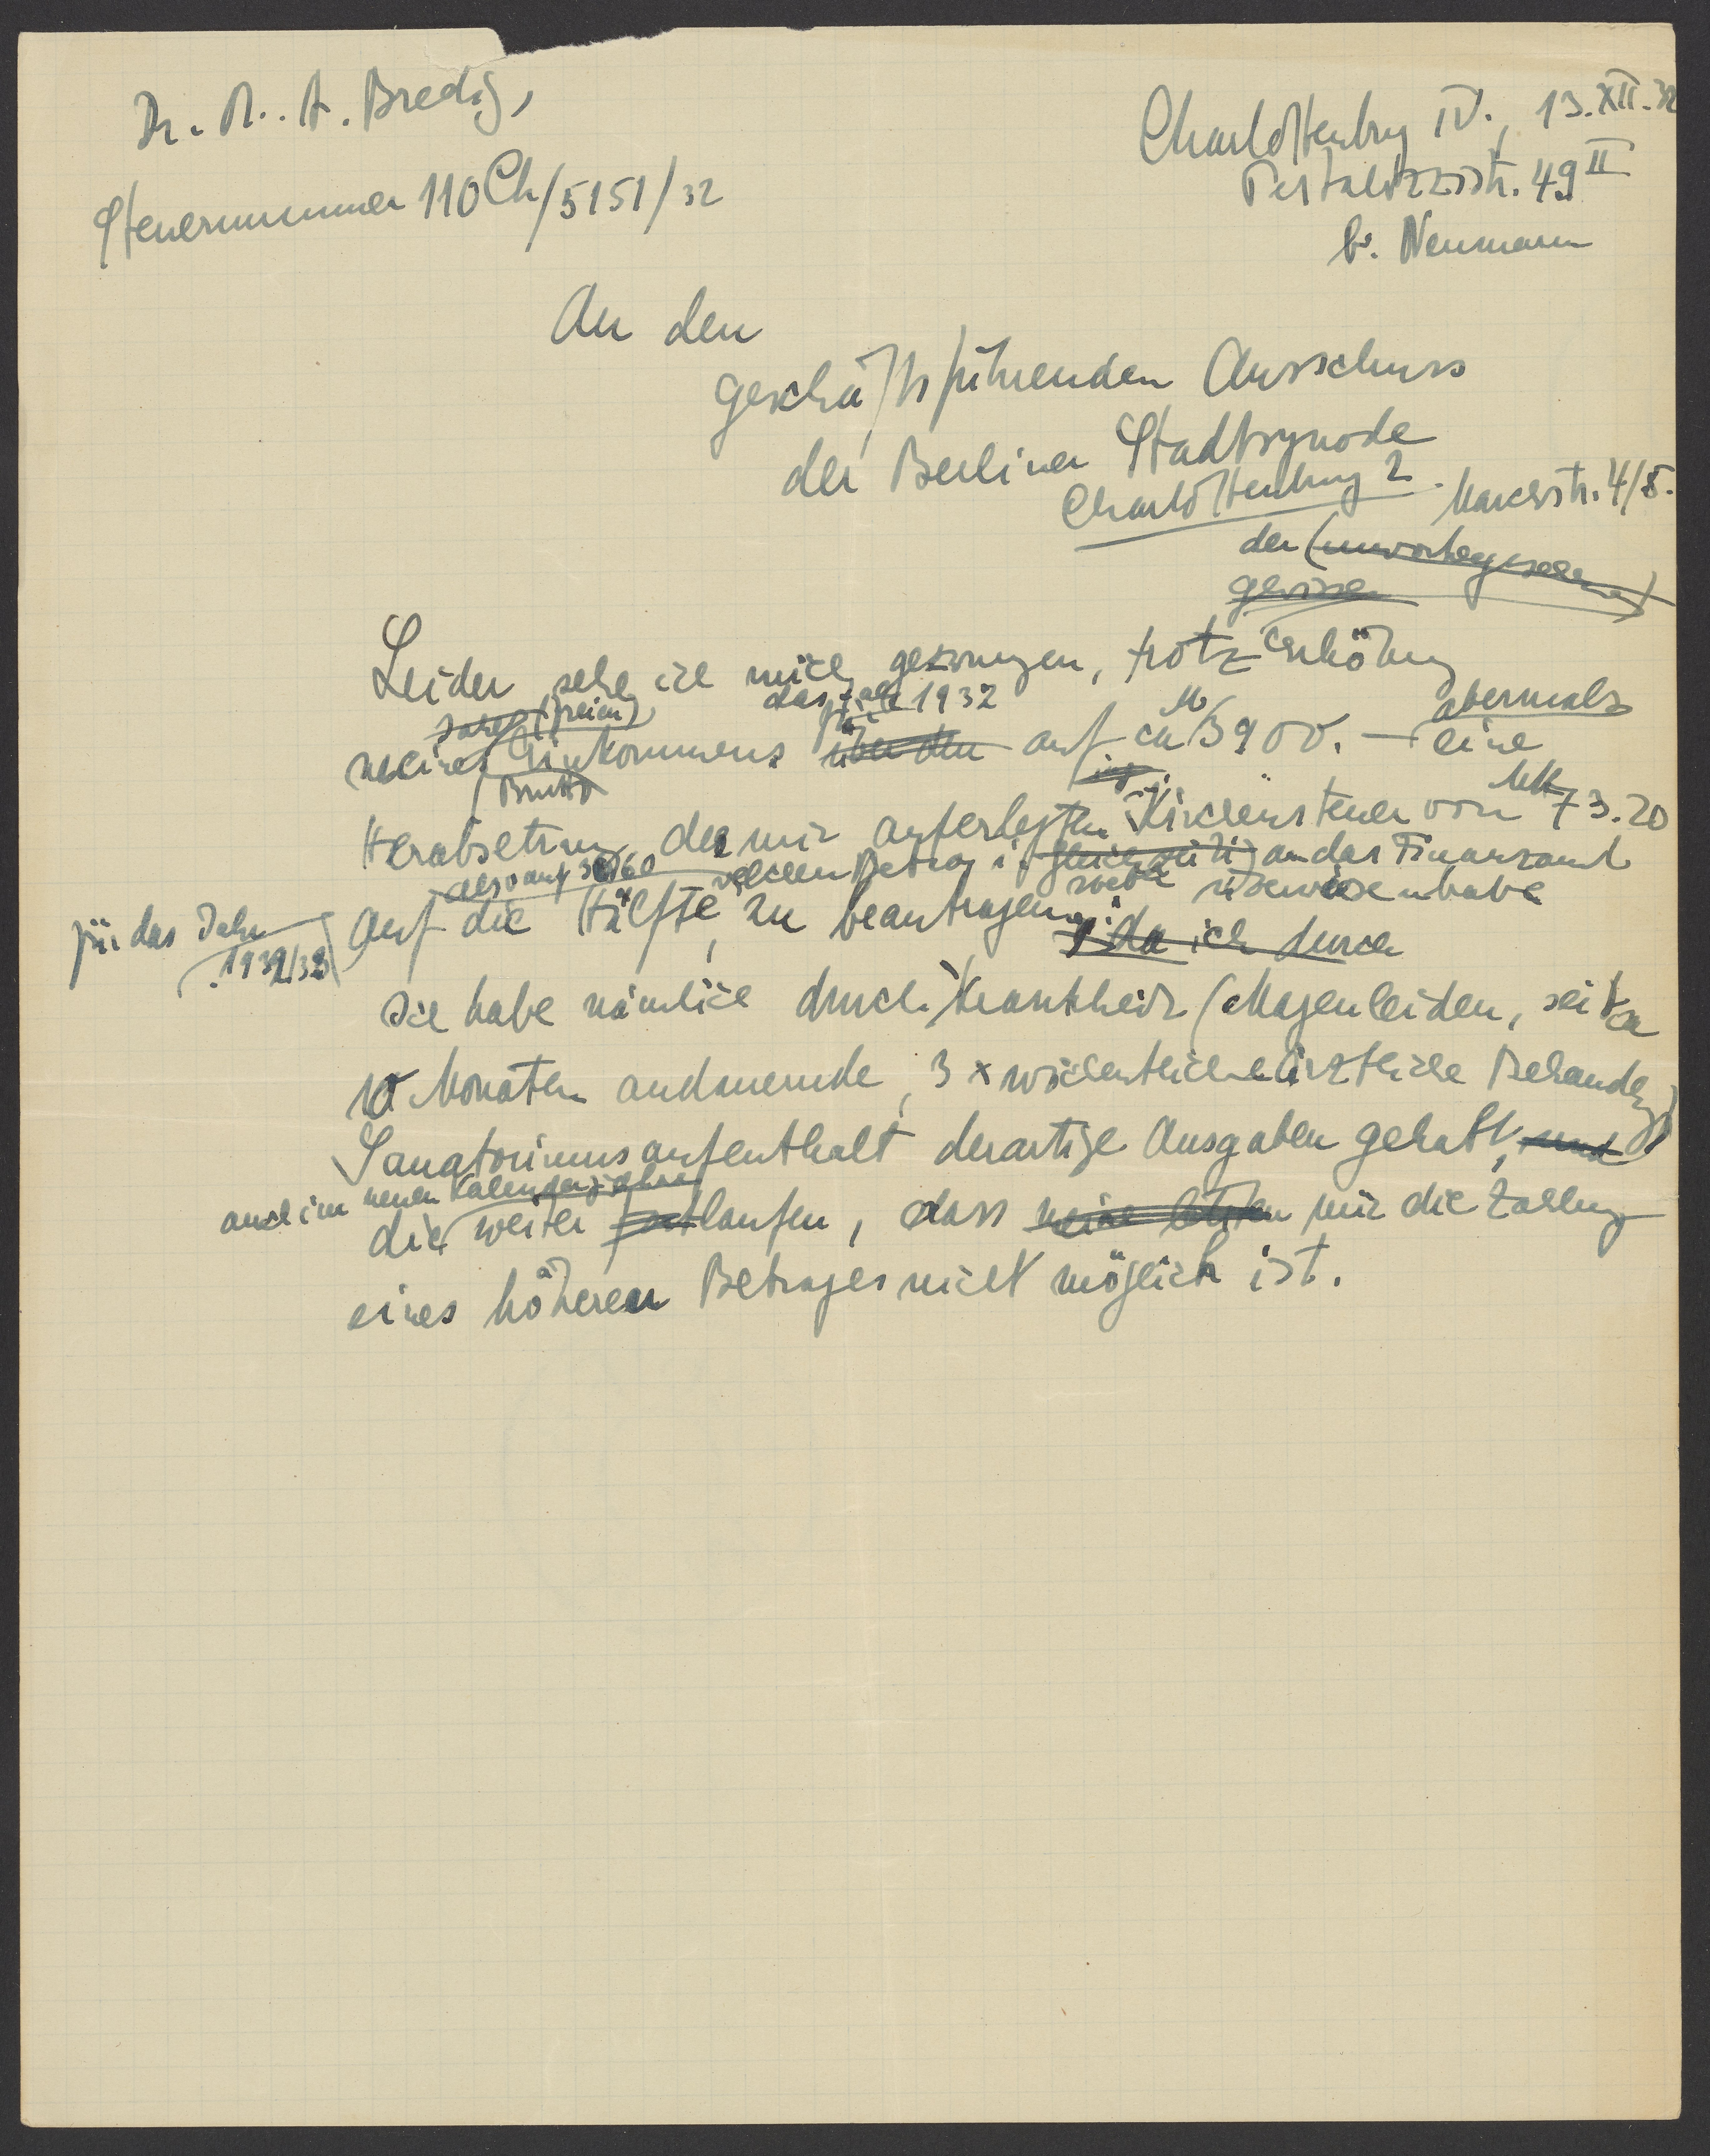 Dr. M. A. Bredig,
Charlottenburg IV., 13.XII.32
Steuernummer 110 Ch/5151/32
Pestalozzistr. 49 II
b. Neumann
An den
geschäftsführenden Ausschuss
der Berliner Stadtsynode
Charlottenburg 2.
der
gewissen
Leider sehe ich mich gezwungen, trotz Erhöhung
das Jahr 1932
für
abermals
meines Einkommens über den auf ca M 3900.— eine
Brutto
Mk
Herabsetzung der mir auferlegten Kirchensteuer von 73.20
also auf 36.60 welchen Betrag ich gleichzeitig an das Finanzamt
überwiesen habe
für das Jahr
1932/33
auf die Hälfte, zu beantragen, da ich durch
Ich habe nämlich durch Krankheit (Magenleiden, seit ca
10 Monaten andauernde, 3 x wöchentliche ärztliche Behandlg)
Sanatoriumsaufenthalt derartige Ausgaben gehabt, und
auch im neuen Kalenderjahre
die weiter fortlaufen, dass mir die Zahlung
eines höheren Betrages nicht möglich ist.